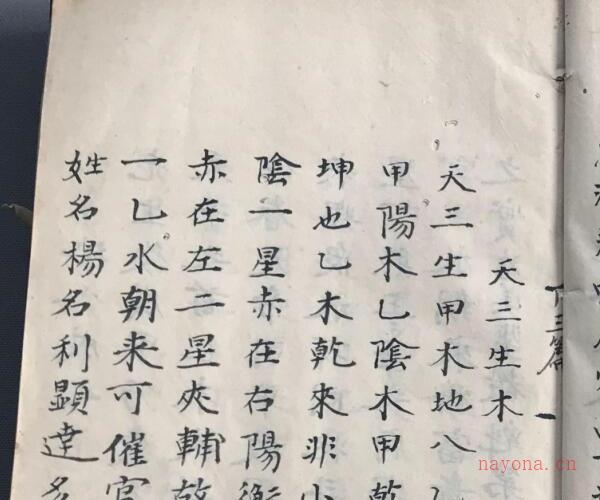 天三生木
天三生甲木地八
甲陽木乙陰木甲乾
坤也乙木乾來非小
陰一星赤在右陽衡
赤在左二星夾輔故
一乙水朝来可催官
姓名楊名利顕達多
nayona.cn